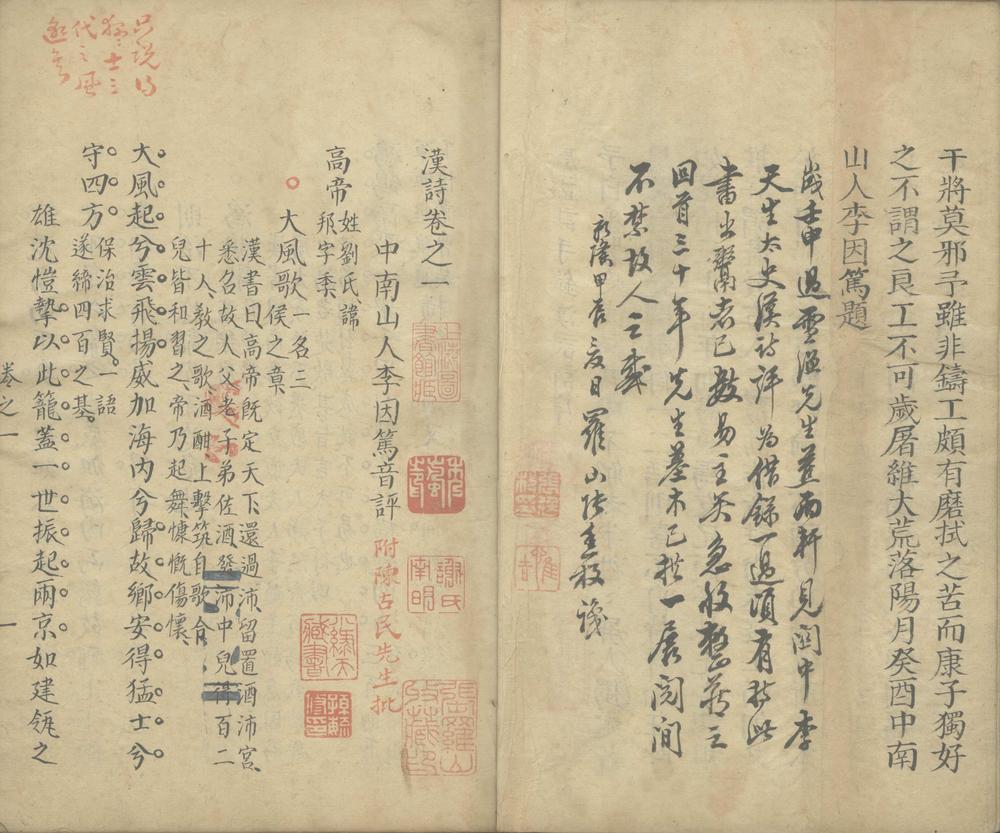 干將莫邪予雖非鑄工頗有磨拭之苦而康子獨好
之不謂之良工不可歲屠維大荒落陽月癸酉中南
山人李因篤題
歲壬申過雪漁先生蓋雨軒見關中李
天生太史漢詩評為借錄一過頃有於此
書出鬻者已數易主矣急收整而藏之
回首三十年先生墓木已拱一展閱間
不禁故人之感
乾隆甲辰夏日羅山張
漢詩卷之一
中南山人李因篤音評
附陳占民先生批
高帝姓劉氏諱
邦字季
大風歌一名三
侯之章
漢書曰高帝既定天下還過沛留置酒沛宮
悉召故人父老子弟佐酒發沛中兒得百二
十人教之歌酒酣上擊筑自歌令
兒皆和習之帝乃起舞慷慨傷懷
大風起兮雲飛揚威加海內兮歸故鄉安得猛士兮
守四方保治求賢一語
遂締四百之基
雄沈愷摯以此籠蓋一世振起兩京如建瓴之
卷之一
一
只說得
猛士三
代之風
邈矣
謝氏
南明
綠天
藏書
張羅山